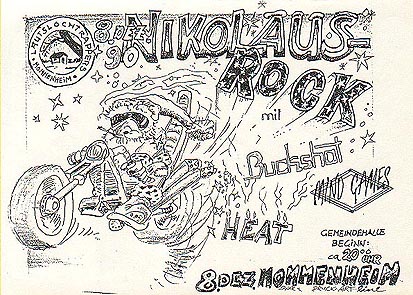 8. DEZ.
90
NIKOLAUS-
ROCK
mit
Buckshot
MIND GAMES
HEAT
GEMEINDEHALLE
BEGINN:
ca 20⁰⁰ UHR
8. DEZ MOMMENHEIM
MOMMENHEIM